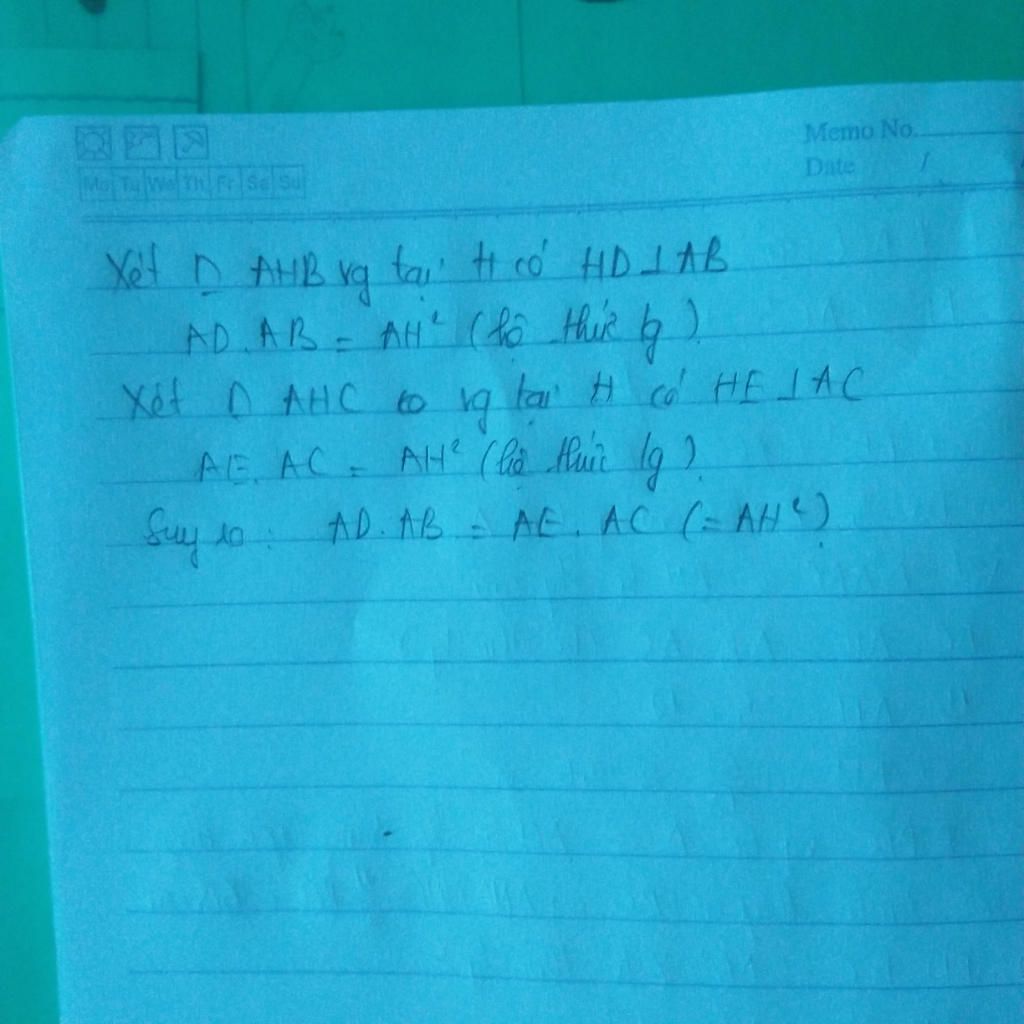 Memo No.
Date /
Mo Tu We Th Fr Sa Su
Xét Δ AHB vg tại H có HD ⊥ AB
AD.AB = AH² (hệ thức lg)
Xét Δ AHC vg tại H có HE ⊥ AC
AE.AC = AH² (hệ thức lg)
Suy ra: AD.AB = AE.AC (= AH²)